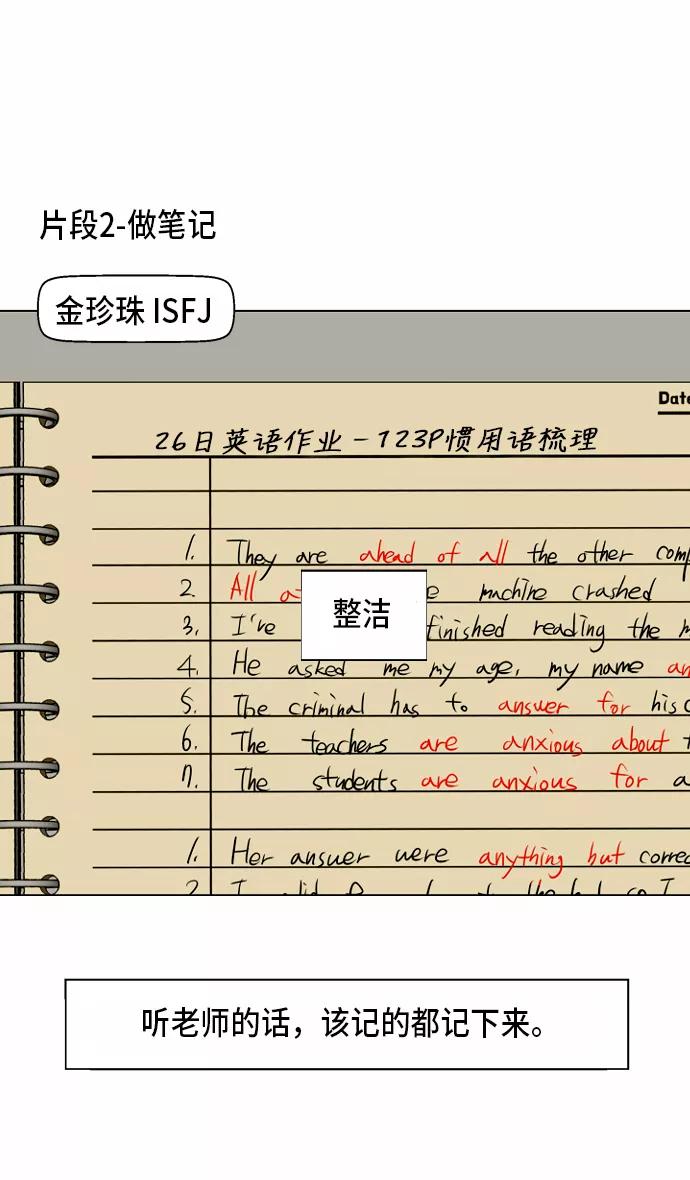 片段2-做笔记
金珍珠 ISFJ
Date
26日英语作业-123P惯用语梳理
1. They are ahead of all the other comp
2. All a
整洁
e machine crashed
3. I've finished reading the m
4. He asked me my age, my name an
5. The criminal has to answer for his c
6. The teachers are anxious about t
7. The students are anxious for a
1. Her answer were anything but correc
2. I
听老师的话，该记的都记下来。